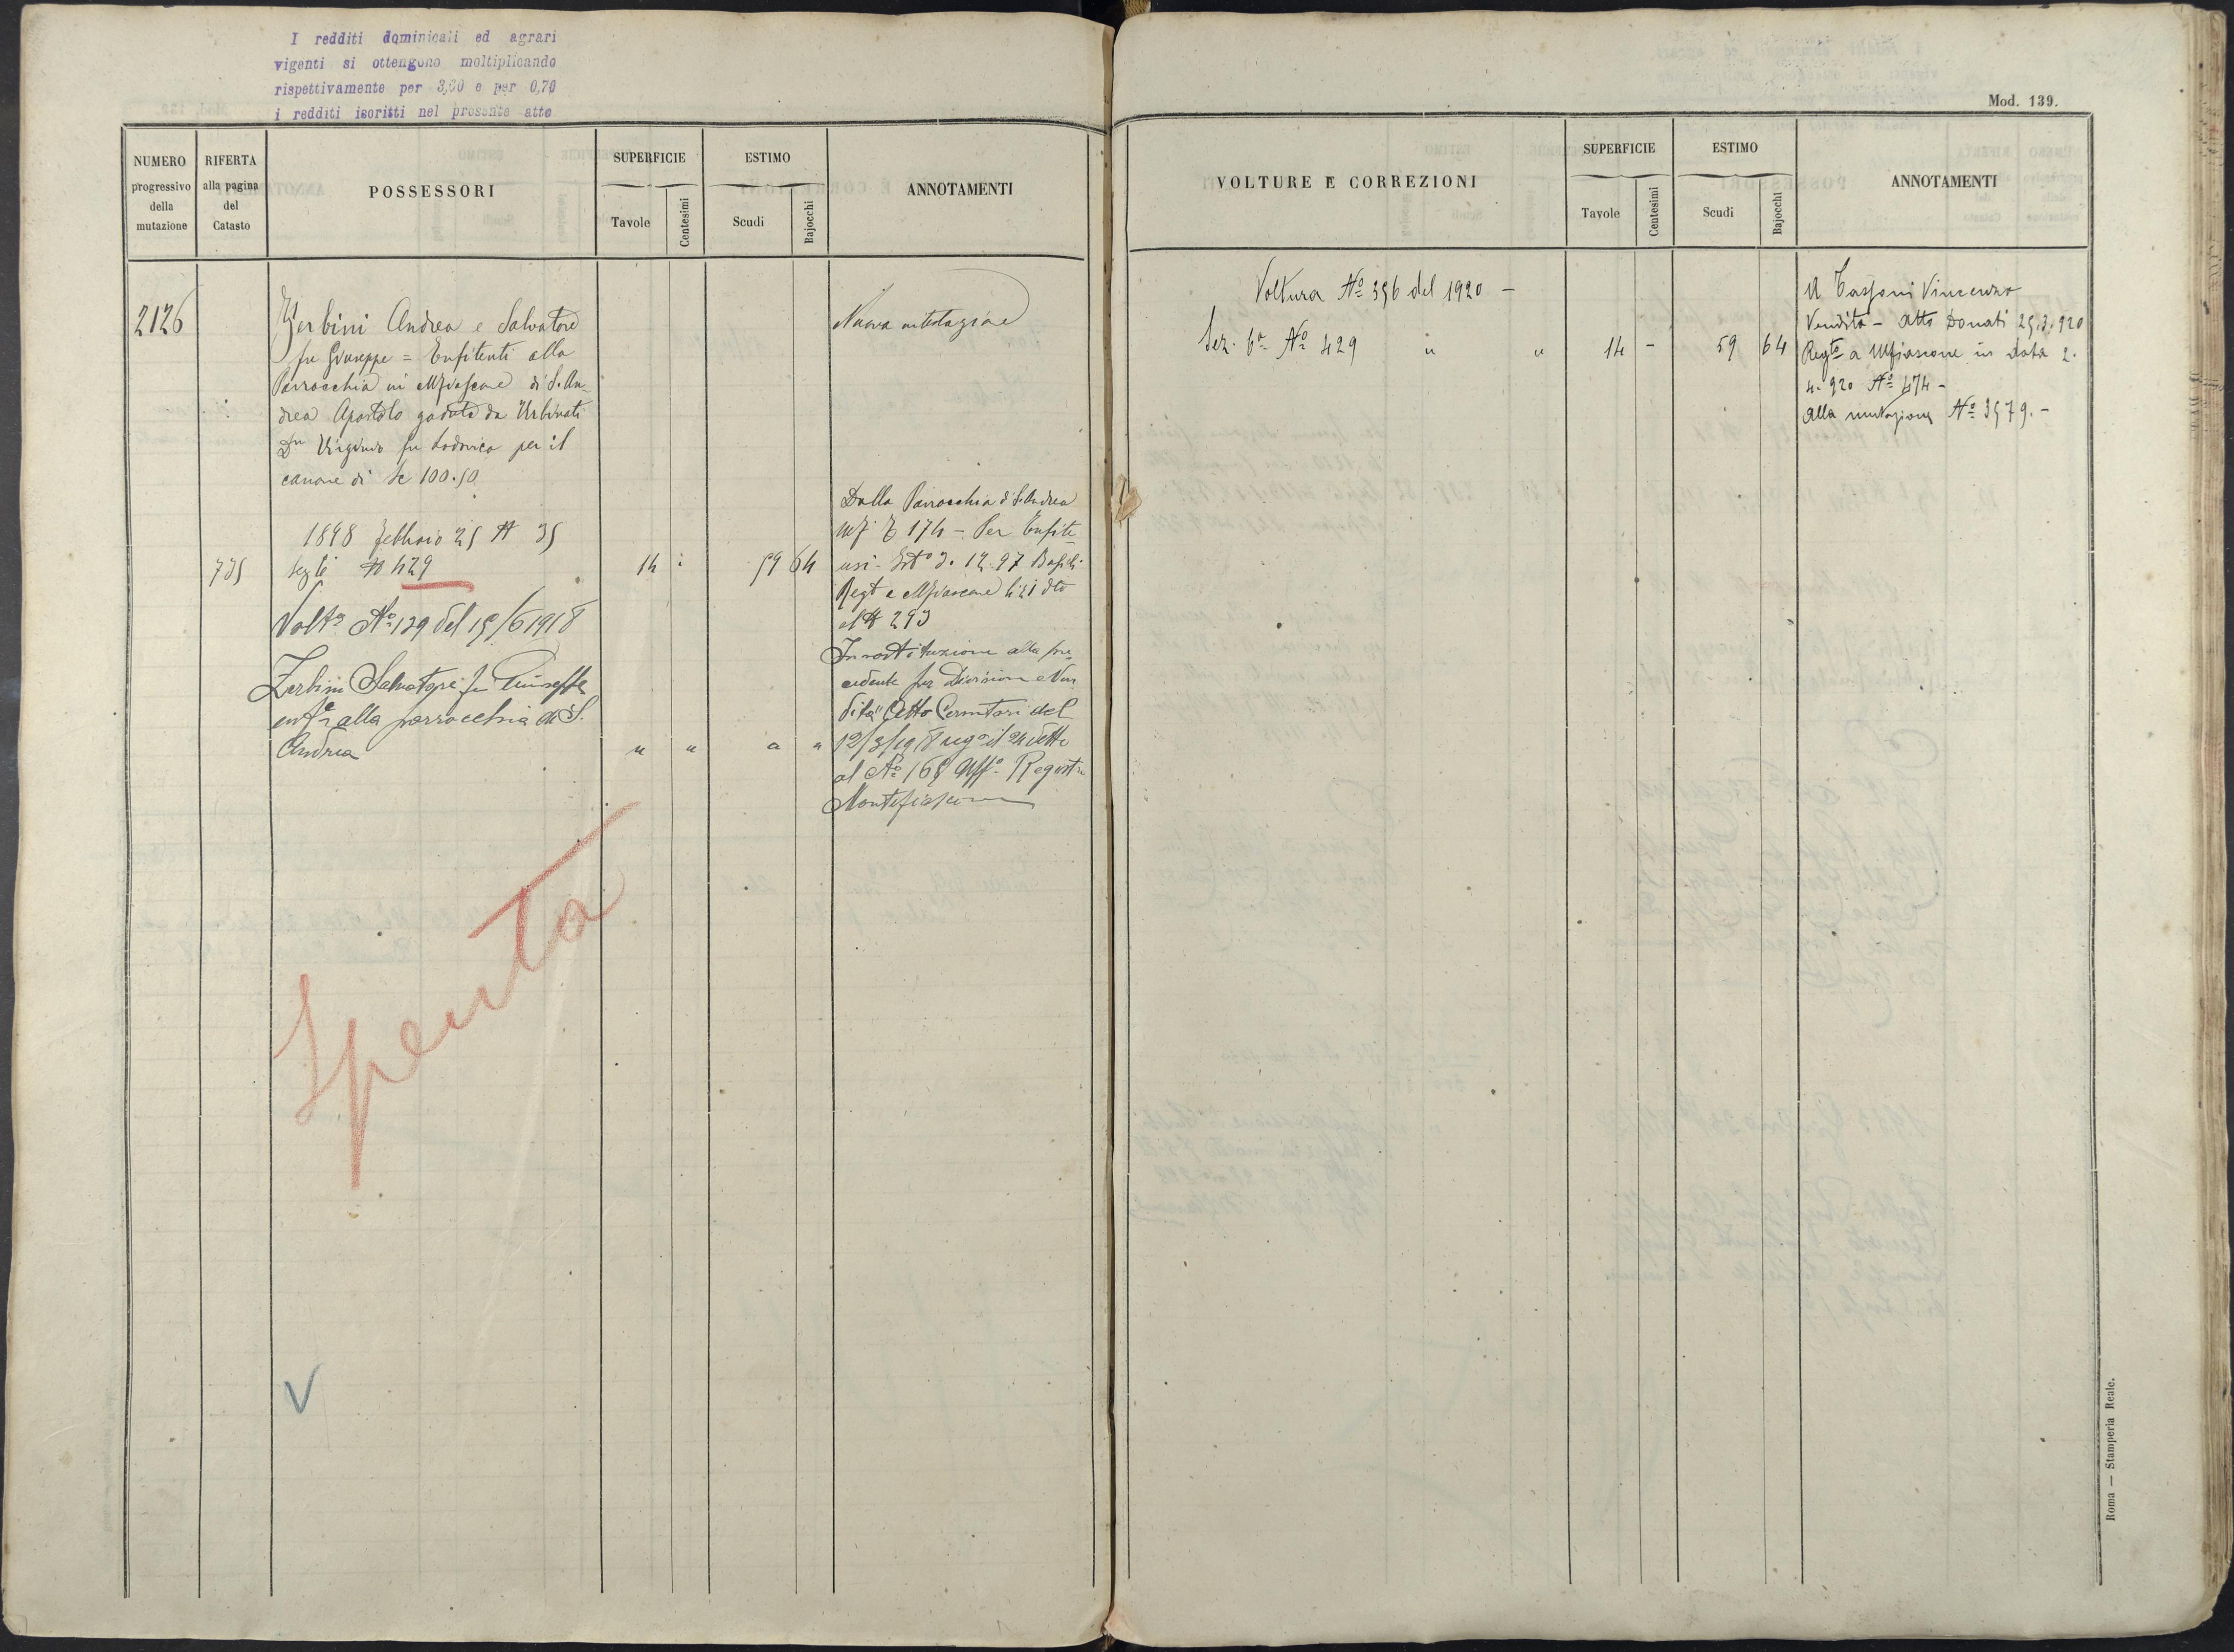 I redditi dominicali ed agrari
vigenti si ottengono moltiplicando
rispettivamente per 3,60 e per 0,70
i redditi iscritti nel presente atto
NUMERO
progressivo
della
mutazione
RIFERTA
alla pagina
del
Catasto
POSSESSORI
SUPERFICIE
Tavole
Centesimi
ESTIMO
Scudi
Bajocchi
ANNOTAMENTI
2126
Zerbini Andrea e Salvatore
fu Giuseppe = Enfiteuti alla
Parrocchia in Mfiascone di S. An-
drea Apostolo goduta da Urbinati
Dn Virginio fu Lodovico per il
canone di Sc 100.50
Nuova intestazione
1898 febbraio 25 N 35
735 Sez 6ª N 429 14 : 59 64
Dalla Parrocchia di S. Andrea
Mf. 174 - Per Enfite
usi - 3.12.97
Regt a Mfiascone li 21 dto
al N 293
Voltª Nº 129 del 15/6 1918
Zerbini Salvatore fu Giuseppe
enfª alla parrocchia di S.
Andrea " " " "
In sostituzione alla pre-
cedente per Divisione e Ven
dita Atto del
12/3/1918 regº il 24 detto
al Nº 168 Uffº Registro
Montefiascone
Spenta
V
Mod. 139.
VOLTURE E CORREZIONI
SUPERFICIE
Tavole
Centesimi
ESTIMO
Scudi
Bajocchi
ANNOTAMENTI
Voltura Nº 396 del 1920 -
Sez. 6ª Nº 429 " " 14 - 59 64
A Tassoni Vincenzo
Vendita - atto Donati 25.3.920
Regtº a Mfiascone in data 2.
4.920 Nº 474 -
alla mutazione Nº 3579. -
Roma — Stamperia Reale.